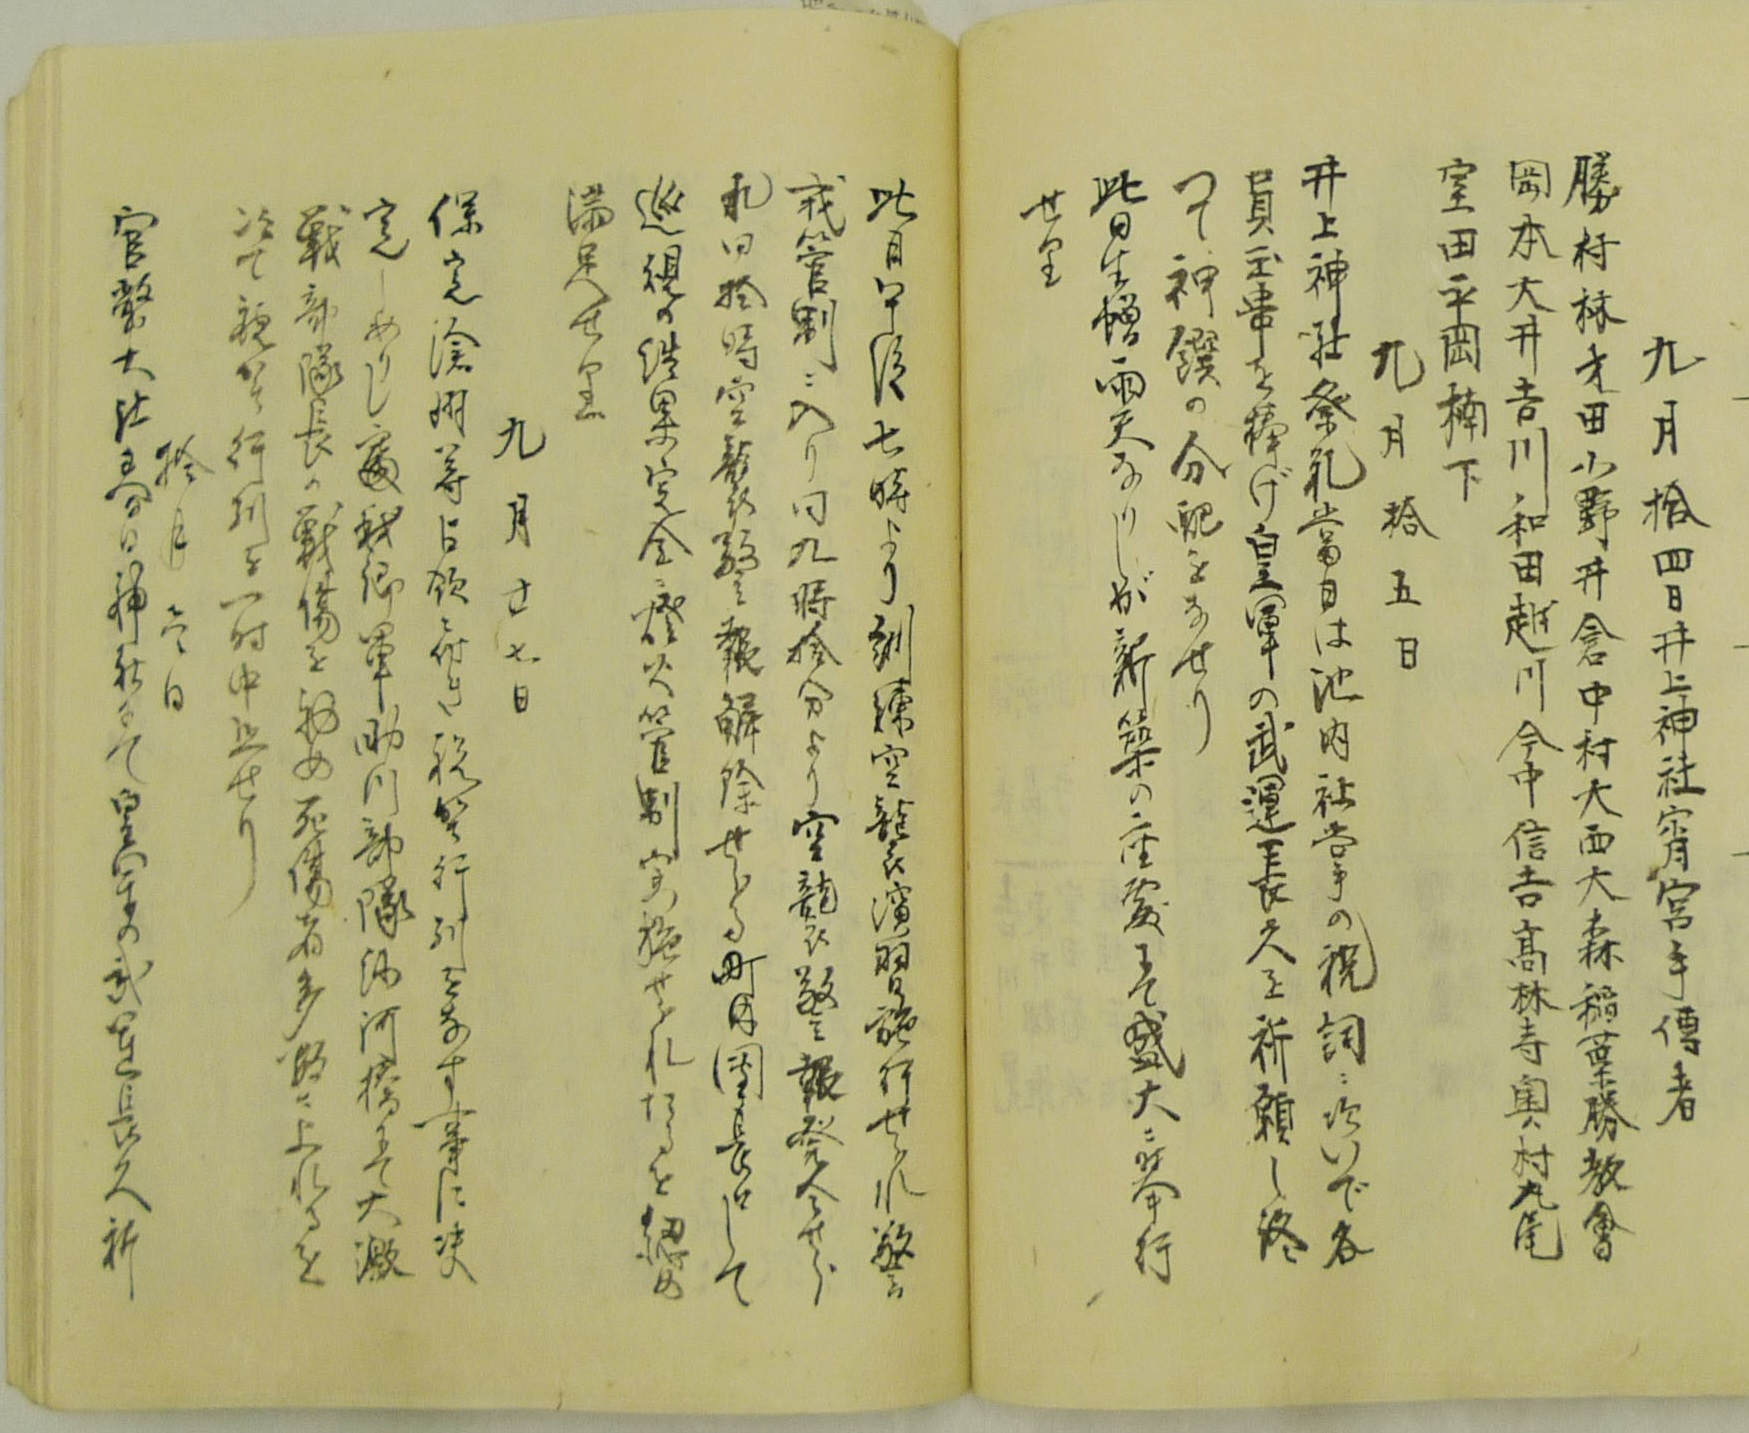 九月拾四日井上神社宵宮手傳者
勝村林才田小野井倉中村大西大森稲葉勝教會
岡本大井吉川和田越川今中信吉高林寺奥村丸尾
室田平岡楠下
九月拾五日
井上神社祭礼當日は池内社掌の祝詞ニ次いで各
員玉串を捧げ皇軍の武運長久を祈願し終
つて神饌の分配をなせり
此日生憎雨天なりしが新築の座敷にて盛大ニ挙行
せり
此日午後七時より訓練空襲演習施行せられ警
戒管制ニ入り同九時拾分より空襲警報発令せら
れ同拾時空襲警報解除せらる町内団長として
巡視の結果完全ニ燈火管制実施せられたるを認め
満足せり
九月廿七日
保定滄州等占領ニ付き祝賀行列をなす事に決
定しありし處我郷軍助川部隊 河橋にて大激
戦部隊長の戦傷を初め死傷者多数ニ上れるを
以て祝賀行列を一時中止せり
拾月壱日
官幣大社 神社にて皇軍の武運長久祈